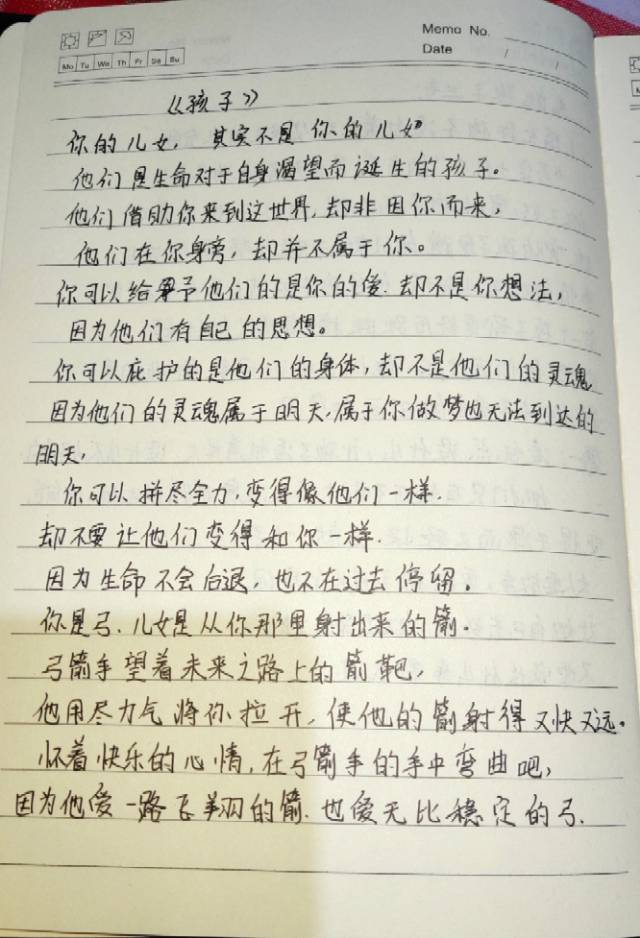 Memo No.
Date / /
Mo Tu We Th Fr Sa Su
《孩子》
你的儿女，其实不是你的儿女
他们是生命对于自身渴望而诞生的孩子。
他们借助你来到这世界,却非因你而来,
他们在你身旁，却并不属于你。
你可以给予他们的是你的爱.却不是你想法,
因为他们有自己的思想。
你可以庇护的是他们的身体,却不是他们的灵魂
因为他们的灵魂属于明天,属于你做梦也无法到达的
明天,
你可以拼尽全力,变得像他们一样.
却不要让他们变得和你一样.
因为生命不会后退，也不在过去停留.
你是弓.儿女是从你那里射出来的箭.
弓箭手望着未来之路上的箭靶,
他用尽力气将你拉开,使他的箭射得又快又远.
怀着快乐的心情,在弓箭手的手中弯曲吧,
因为他爱一路飞翔的箭.也爱无比稳定的弓.